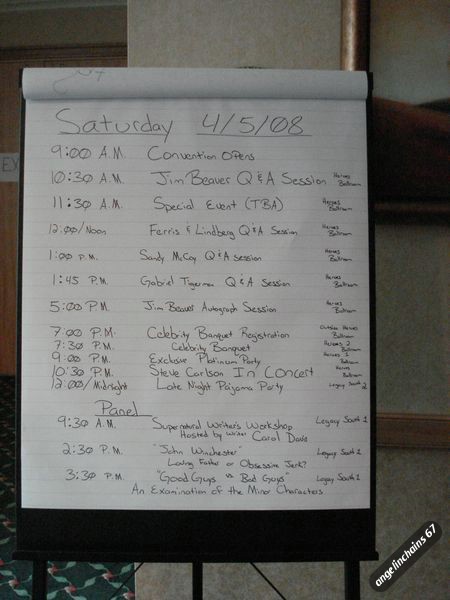 Saturday 4/5/08
9:00 A.M. Convention Opens
10:30 A.M. Jim Beaver Q & A Session Heroes Ballroom
11:30 A.M. Special Event (TBA) Heroes Ballroom
12:00/Noon Ferris & Lindberg Q & A Session Heroes Ballroom
1:00 P.M. Sandy McCoy Q & A Session Heroes Ballroom
1:45 P.M. Gabriel Tigerman Q & A Session Heroes Ballroom
5:00 P.M. Jim Beaver Autograph Session Heroes Ballroom
7:00 P.M. Celebrity Banquet Registration Outside Heroes Ballroom
7:30 P.M. Celebrity Banquet Heroes 2 Ballroom
9:00 P.M. Exclusive Platinum Party Heroes 1 Ballroom
10:30 P.M. Steve Carlson In Concert Heroes Ballroom
12:00/Midnight Late Night Pajama Party Legacy South 2
Panel
9:30 A.M. Supernatural Writer's Workshop Legacy South 1
Hosted by Writer Carol Davis
2:30 P.M. "John Winchester" Legacy South 1
Loving Father or Obsessive Jerk?
3:30 P.M. "Good Guys vs Bad Guys" Legacy South 1
An Examination of the Minor Characters
EX
angelinchains 67